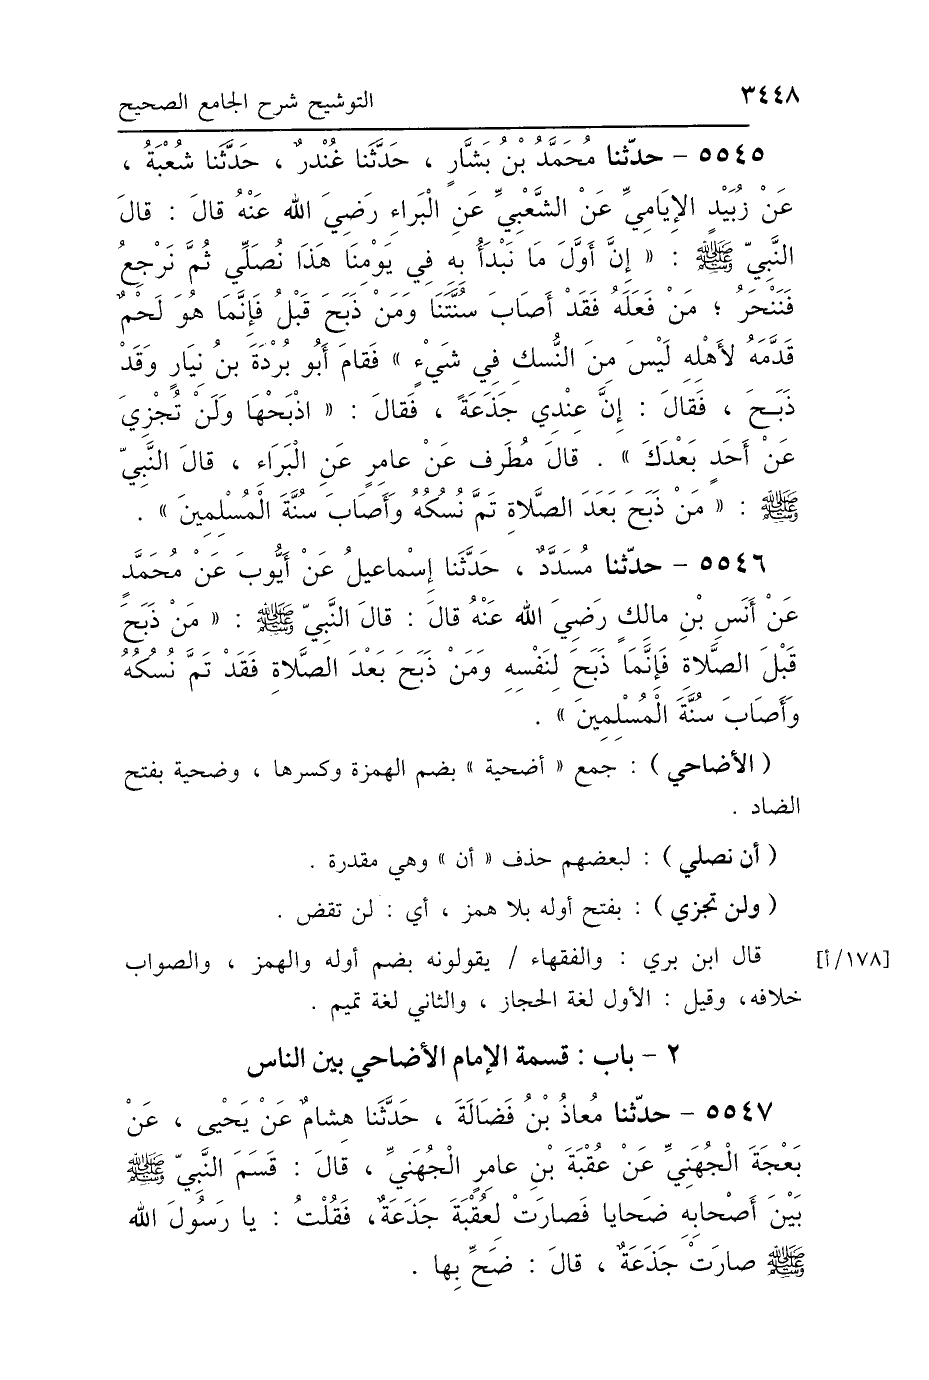 ٣٤٤٨
التوشيح شرح الجامع الصحيح
٥٥٤٥ - حدّثنا مُحَمَّدُ بْنُ بَشَّارٍ ، حَدَّثَنا غُنْدرٌ ، حَدَّثَنا شُعْبَةُ ،
عَنْ زُبَيْدٍ الإيَامِيِّ عَنْ الشَّعْبِيِّ عَنِ الْبَراءِ رَضِيَ الله عَنْهُ قالَ : قالَ
النَّبِيّ ﷺ : « إنَّ أَوَّلَ مَا نَبْدَأُ بِهِ فِي يَوْمِنَا هَذَا نُصَلِّي ثُمَّ نَرْجِعُ
فَنَنْحَرُ ؛ مَنْ فَعَلَهُ فَقَدْ أصَابَ سنُّتَنَا وَمَنْ ذبَحَ قَبْلُ فَإنَّمَا هُوَ لَحْمٌ
قَدَّمَهُ لأَهْلِهِ لَيْسَ مِنَ النُّسكِ فِي شَيْءٍ » فَقامَ أَبُو بُرْدَةَ بنُ نِيَارٍ وَقَدْ
ذَبَحَ ، فَقالَ : إنَّ عِنْدِي جَذَعَةً ، فَقالَ : « اذْبَحْهَا وَلَنْ تُجْزِيَ
عَنْ أَحَدٍ بَعْدَكَ » . قالَ مُطَرِف عَنْ عامِرٍ عَنِ الْبَرَاءِ ، قالَ النَّبِيّ
ﷺ : « مَنْ ذَبَحَ بَعَدَ الصَّلاةِ تَمَّ نُسُكُهُ وَأَصَابَ سنُّةَ الْمُسْلِمِينَ » .
٥٥٤٦ - حدّثنا مُسَدَّدٌ ، حَدَّثَنا إسْماعِيلُ عَنْ أَيُّوبَ عَنْ مُحَمَّدٍ
عَنْ أَنَسِ بْنِ مالِكٍ رَضِيَ الله عَنْهُ قالَ : قالَ النَّبِيّ ﷺ : « مَنْ ذَبَحَ
قَبْلَ الصَّلاةِ فَإنَّمَا ذَبَحَ لِنَفْسِهِ وَمَنْ ذَبَحَ بَعْدَ الصَّلاةِ فَقَدْ تَمَّ نُسُكُهُ
وَأَصَابَ سنُّةَ الْمُسْلِمِينَ » .
( الأضاحي ) : جمع « أضحية » بضم الهمزة وكسرها ، وضحية بفتح
الضاد .
( أن نصلي ) : لبعضهم حذف « أن » وهي مقدرة .
( ولن تجزي ) : بفتح أوله بلا همز ، أي : لن تقض .
قال ابن بري : والفقهاء / يقولونه بضم أوله والهمز ، والصواب [١٧٨/أ]
خلافه، وقيل : الأول لغة الحجاز ، والثاني لغة تميم .
٢ - باب : قسمة الإمام الأضاحي بين الناس
٥٥٤٧ - حدّثنا مُعاذُ بْنُ فَضَالَةَ ، حَدَّثَنا هِشامٌ عَنْ يَحْيى ، عَنْ
بَعْجَةَ الْجُهَنِيِّ عَنْ عُقْبَةَ بْنِ عامِرٍ الْجُهَنِيِّ ، قالَ : قَسَمَ النَّبِيّ ﷺ
بَيْنَ أَصْحابِهِ ضَحايا فَصارَتْ لِعُقْبَةَ جَذَعَةٌ، فَقُلْتُ : يا رَسُولَ الله
ﷺ صارَتْ جَذَعَةٌ ، قالَ : ضَحِّ بِها .